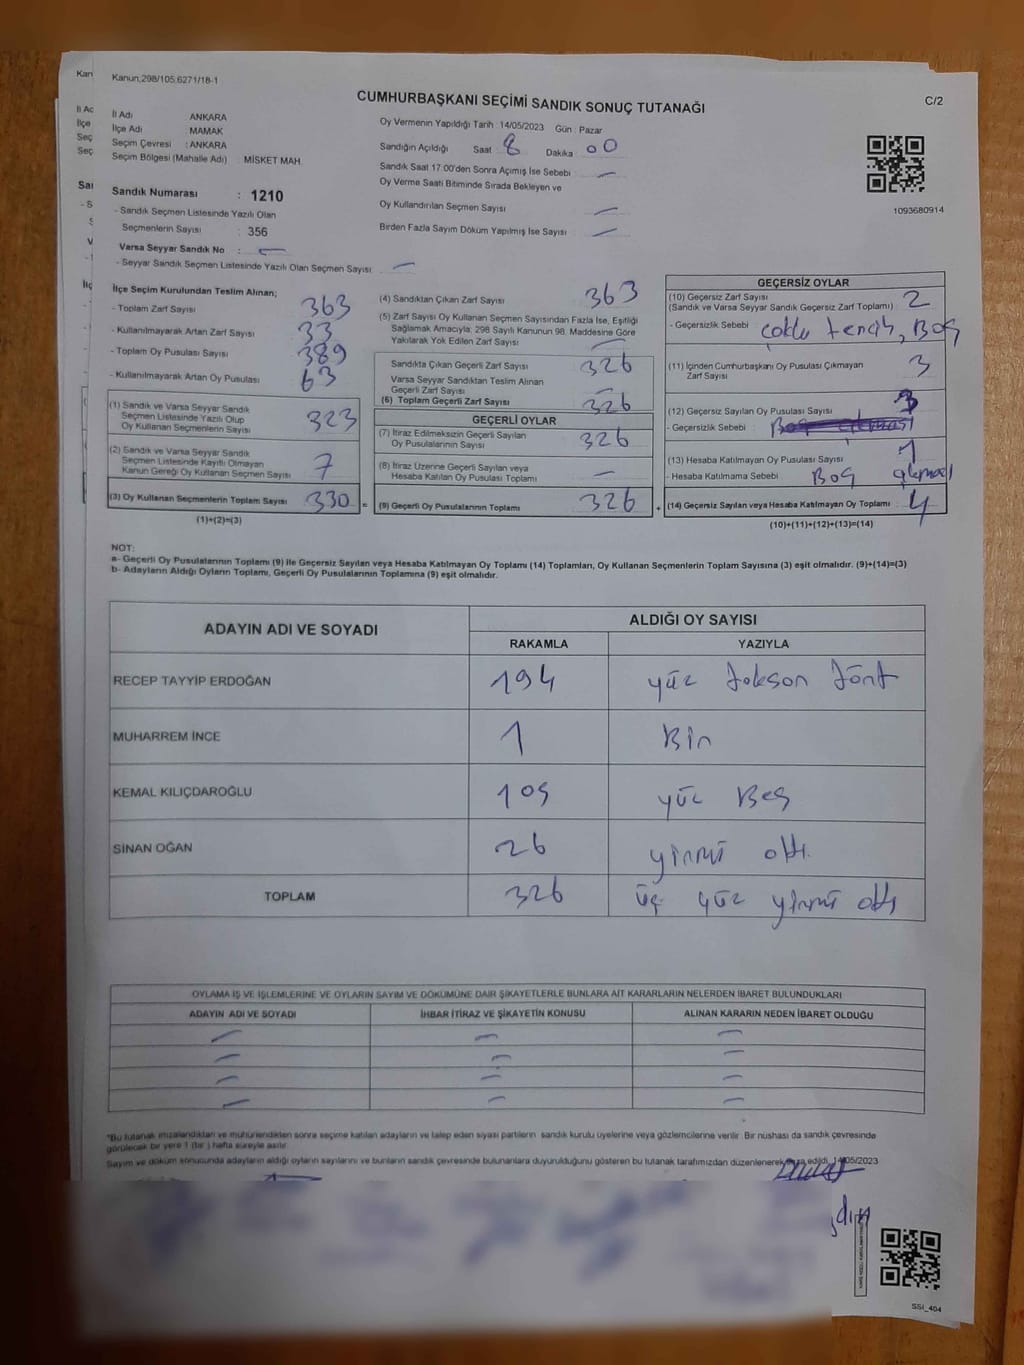 Kanun;298/105,6271/18-1
C/2
CUMHURBAŞKANI SEÇİMİ SANDIK SONUÇ TUTANAĞI
İl Adı ANKARA
İlçe Adı MAMAK
Seçim Çevresi : ANKARA
Seçim Bölgesi (Mahalle Adı) MİSKET MAH.
Sandık Numarası : 1210
- Sandık Seçmen Listesinde Yazılı Olan
Seçmenlerin Sayısı : 356
Varsa Seyyar Sandık No : –
- Seyyar Sandık Seçmen Listesinde Yazılı Olan Seçmen Sayısı: –
Oy Vermenin Yapıldığı Tarih : 14/05/2023 Gün : Pazar
Sandığın Açıldığı Saat : 8 Dakika : 00
Sandık Saat 17:00'den Sonra Açılmış İse Sebebi : –
Oy Verme Saati Bitiminde Sırada Bekleyen ve
Oy Kullandırılan Seçmen Sayısı : –
Birden Fazla Sayım Döküm Yapılmış İse Sayısı : –
1093680914
İlçe Seçim Kurulundan Teslim Alınan;
- Toplam Zarf Sayısı 363
- Kullanılmayarak Artan Zarf Sayısı 33
- Toplam Oy Pusulası Sayısı 389
- Kullanılmayarak Artan Oy Pusulası 63
(1) Sandık ve Varsa Seyyar Sandık
Seçmen Listesinde Yazılı Olup
Oy Kullanan Seçmenlerin Sayısı 323
(2) Sandık ve Varsa Seyyar Sandık
Seçmen Listesinde Kayıtlı Olmayan
Kanun Gereği Oy Kullanan Seçmen Sayısı 7
(3) Oy Kullanan Seçmenlerin Toplam Sayısı 330 =
(1)+(2)=(3)
(4) Sandıktan Çıkan Zarf Sayısı 363
(5) Zarf Sayısı Oy Kullanan Seçmen Sayısından Fazla İse, Eşitliği
Sağlamak Amacıyla; 298 Sayılı Kanunun 98. Maddesine Göre
Yakılarak Yok Edilen Zarf Sayısı –
Sandıkta Çıkan Geçerli Zarf Sayısı 326
Varsa Seyyar Sandıktan Teslim Alınan
Geçerli Zarf Sayısı –
(6) Toplam Geçerli Zarf Sayısı 326
GEÇERLİ OYLAR
(7) İtiraz Edilmeksizin Geçerli Sayılan
Oy Pusulalarının Sayısı 326
(8) İtiraz Üzerine Geçerli Sayılan veya
Hesaba Katılan Oy Pusulası Toplamı –
(9) Geçerli Oy Pusulalarının Toplamı 326 +
GEÇERSİZ OYLAR
(10) Geçersiz Zarf Sayısı 2
(Sandık ve Varsa Seyyar Sandık Geçersiz Zarf Toplamı)
- Geçersizlik Sebebi çoklu tercih, Boş
(11) İçinden Cumhurbaşkanı Oy Pusulası Çıkmayan
Zarf Sayısı 3
(12) Geçersiz Sayılan Oy Pusulası Sayısı
- Geçersizlik Sebebi :
(13) Hesaba Katılmayan Oy Pusulası Sayısı 1
- Hesaba Katılmama Sebebi Boş
(14) Geçersiz Sayılan veya Hesaba Katılmayan Oy Toplamı 4
(10)+(11)+(12)+(13)=(14)
NOT:
a- Geçerli Oy Pusulalarının Toplamı (9) ile Geçersiz Sayılan veya Hesaba Katılmayan Oy Toplamı (14) Toplamları, Oy Kullanan Seçmenlerin Toplam Sayısına (3) eşit olmalıdır. (9)+(14)=(3)
b- Adayların Aldığı Oyların Toplamı, Geçerli Oy Pusulalarının Toplamına (9) eşit olmalıdır.
ADAYIN ADI VE SOYADI ALDIĞI OY SAYISI
RAKAMLA YAZIYLA
RECEP TAYYİP ERDOĞAN 194 yüz doksan dört
MUHARREM İNCE 1 Bir
KEMAL KILIÇDAROĞLU 105 yüz Beş
SİNAN OĞAN 26 yirmi altı
TOPLAM 326 üç yüz yirmi altı
OYLAMA İŞ VE İŞLEMLERİNE VE OYLARIN SAYIM VE DÖKÜMÜNE DAİR ŞİKAYETLERLE BUNLARA AİT KARARLARIN NELERDEN İBARET BULUNDUKLARI
ADAYIN ADI VE SOYADI İHBAR İTİRAZ VE ŞİKAYETİN KONUSU ALINAN KARARIN NEDEN İBARET OLDUĞU
– – –
– – –
– – –
– – –
"Bu tutanak imzalandıktan ve mühürlendikten sonra seçime katılan adayların ve talep eden siyasi partilerin sandık kurulu üyelerine veya gözlemcilerine verilir. Bir nüshası da sandık çevresinde
görülecek bir yere 1 (bir) hafta süreyle asılır.
Sayım ve döküm sonucunda adayların aldığı oyların sayılarını ve bunların sandık çevresinde bulunanlara duyurulduğunu gösteren bu tutanak tarafımızdan düzenlenerek imza edildi. 14/05/2023
SSI_404